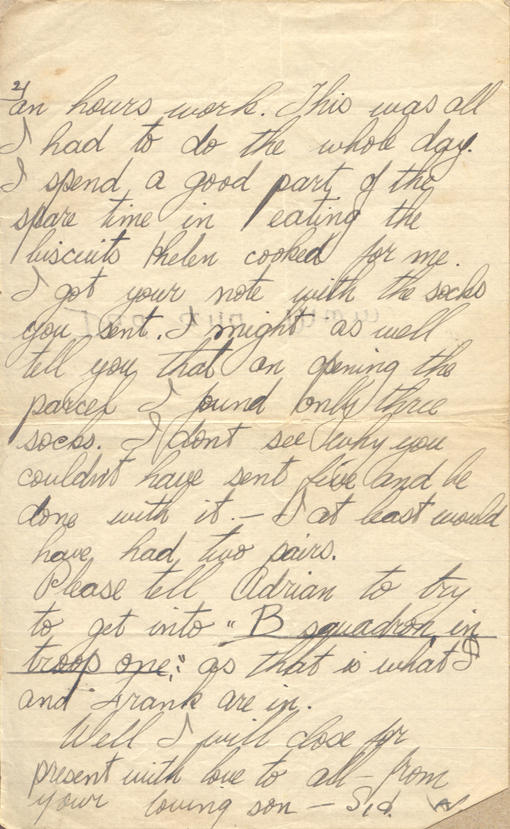 2/
an hours work. This was all
I had to do the whole day.
I spend a good part of the
spare time in eating the
biscuits Helen cooked for me.
I got your note with the socks
you sent. I might as well
tell you that on opening the
parcel I found only three
socks. I dont see why you
couldn't have sent five and be
done with it. – I at least would
have had two pairs.
Please tell Adrian to try
to get into "B squadron in
troop one," as that is what I
and Frank are in.
Well I will close for
present with love to all – from
your loving son – Sid.